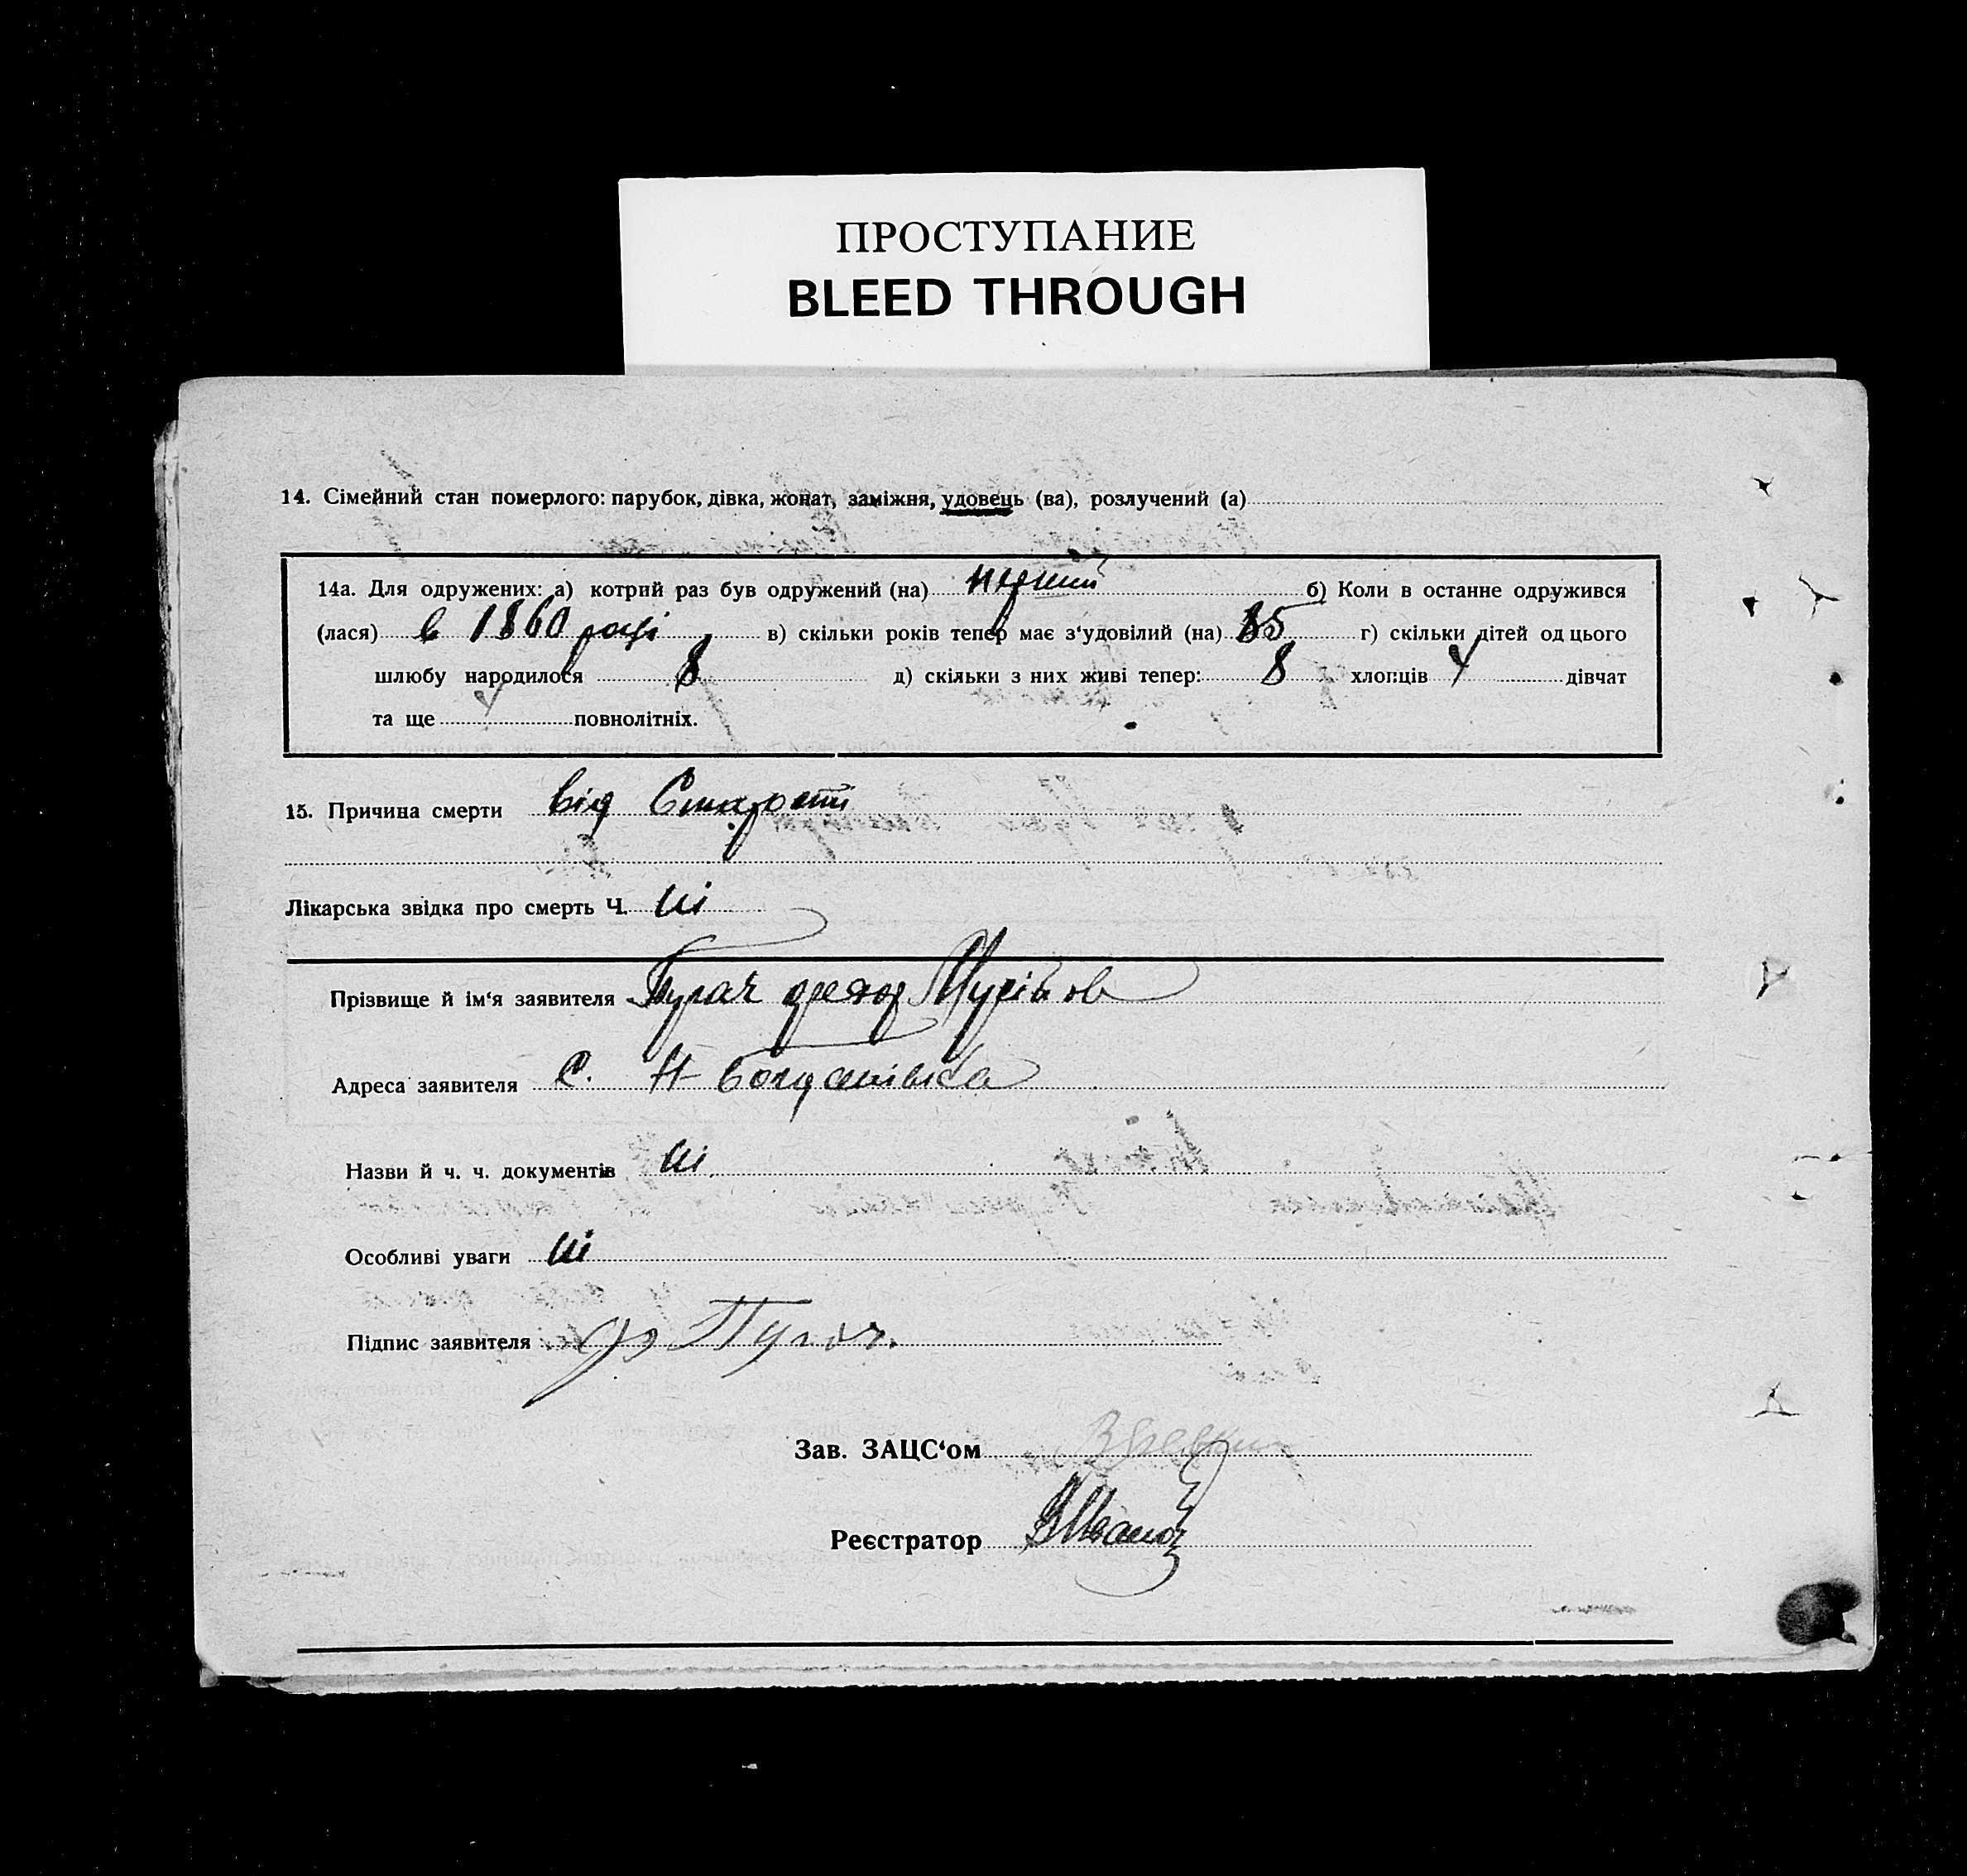 ПРОСТУПАНИЕ
BLEED THROUGH
14. Сімейний стан померлого: парубок, дівка, жонат, заміжня, удовець (ва), розлучений (а)
14а. Для одружених: а) котрий раз був одружений (на) перший б) Коли в останне одружився
(лася) в 1860 році в) скільки років тепер має з‘удовілий (на) г) скільки дітей од цього
шлюбу народилося 8 д) скільки з них живі тепер: 8 хлопців 4 дівчат
та ще 4 повнолітніх.
15. Причина смерти від Старости
Лікарська звідка про смерть Ч. ні
Прізвище й ім‘я заявителя Пугач
Адреса заявителя с. Н Богданівка
Назви й ч. ч. документів ні
Особливі уваги ні
Підпис заявителя Пугач.
Зав. ЗАЦС‘ом
Реєстратор